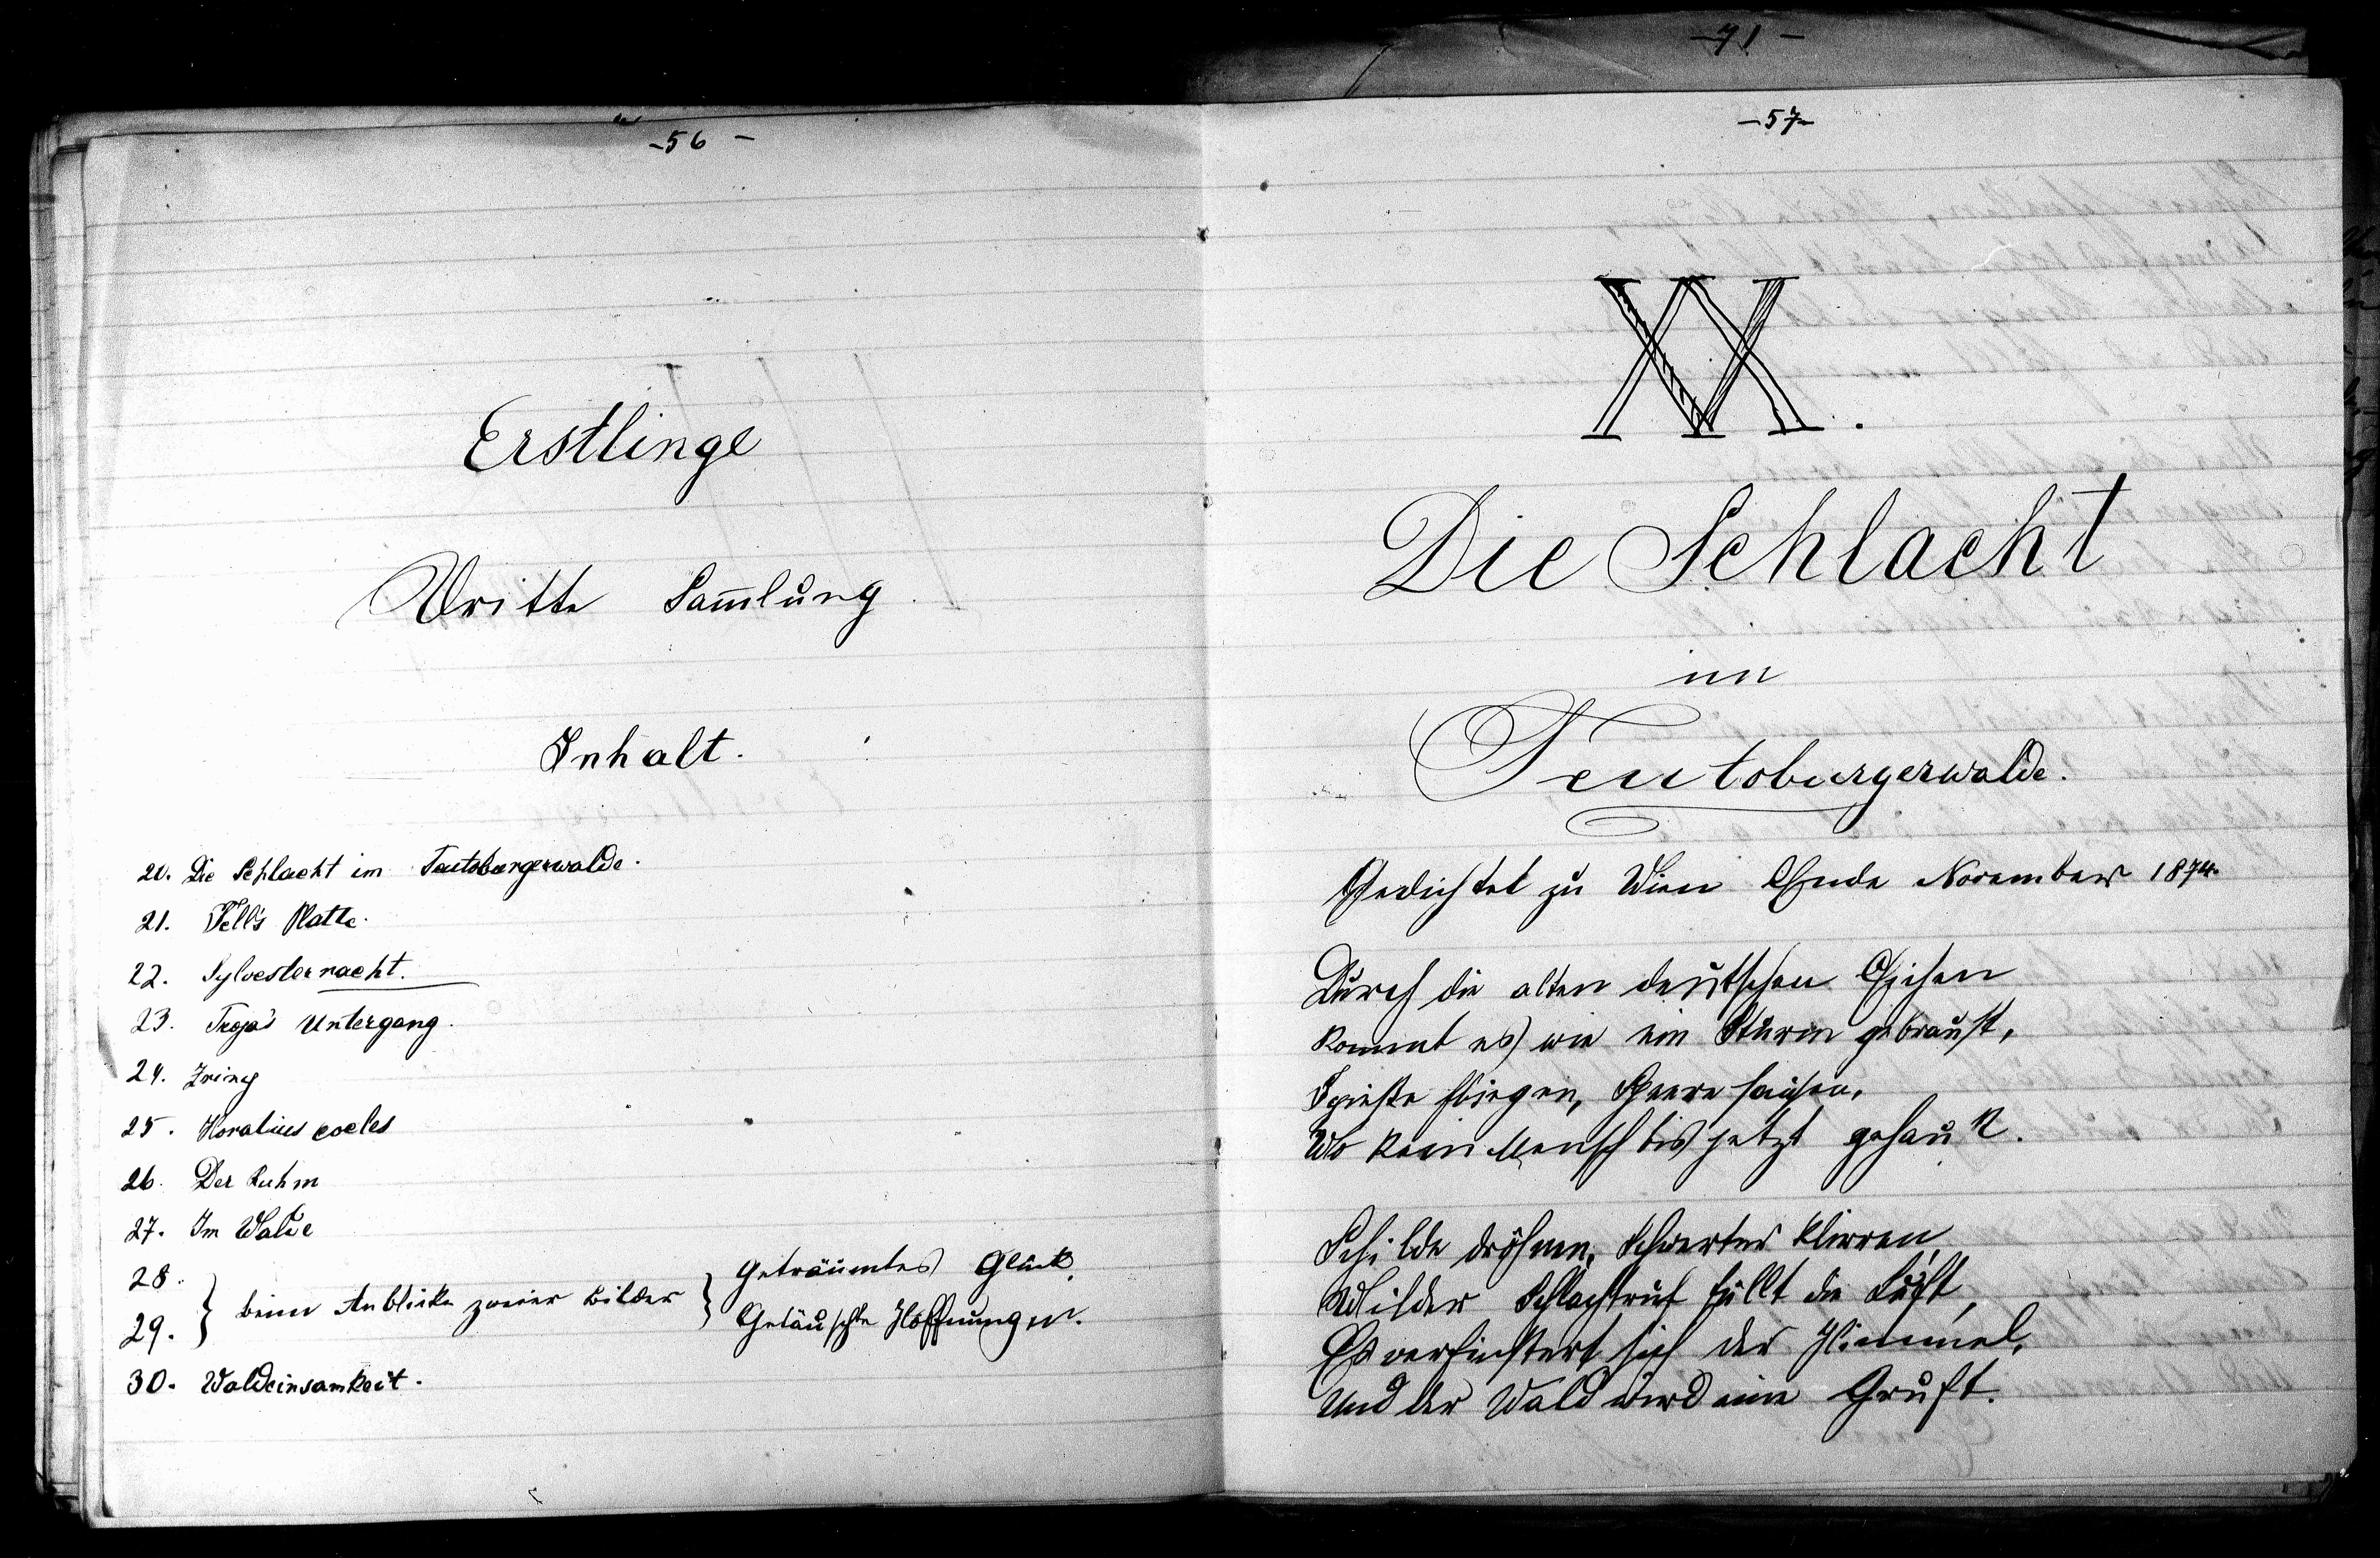 -71-
-56-
Erstlinge
Dritte Sam̄lung
Inhalt.
20. Die Schlacht im Teutoburgerwalde.
21. Tell's Platte.
22. Sylvesternacht.
23. Troja's Untergang.
24. Zriny
25. Horatius cocles
26. Der Ruhm
27. Im Walde
28.
29. } beim Anblicke zweier Bilder { Geträumtes Glück.
Getäuschte Hoffnungen.
30. Waldeinsamkeit.
-57-
XX.
Die Schlacht
im
Teutoburgerwalde.
Gedichtet zu Wien Ende November 1874.
Durch die alten deutschen Eichen
Kommt es wie ein Sturm gebraust,
Spieße fliegen, Speere sausen,
Wo kein Mensch bis jetzt gehaust.
Schilde dröhnen, Schwerter klirren,
Wilder Schlachtruf füllt die Luft,
Es verfinstert sich der Himmel,
Und der Wald wird eine Gruft.